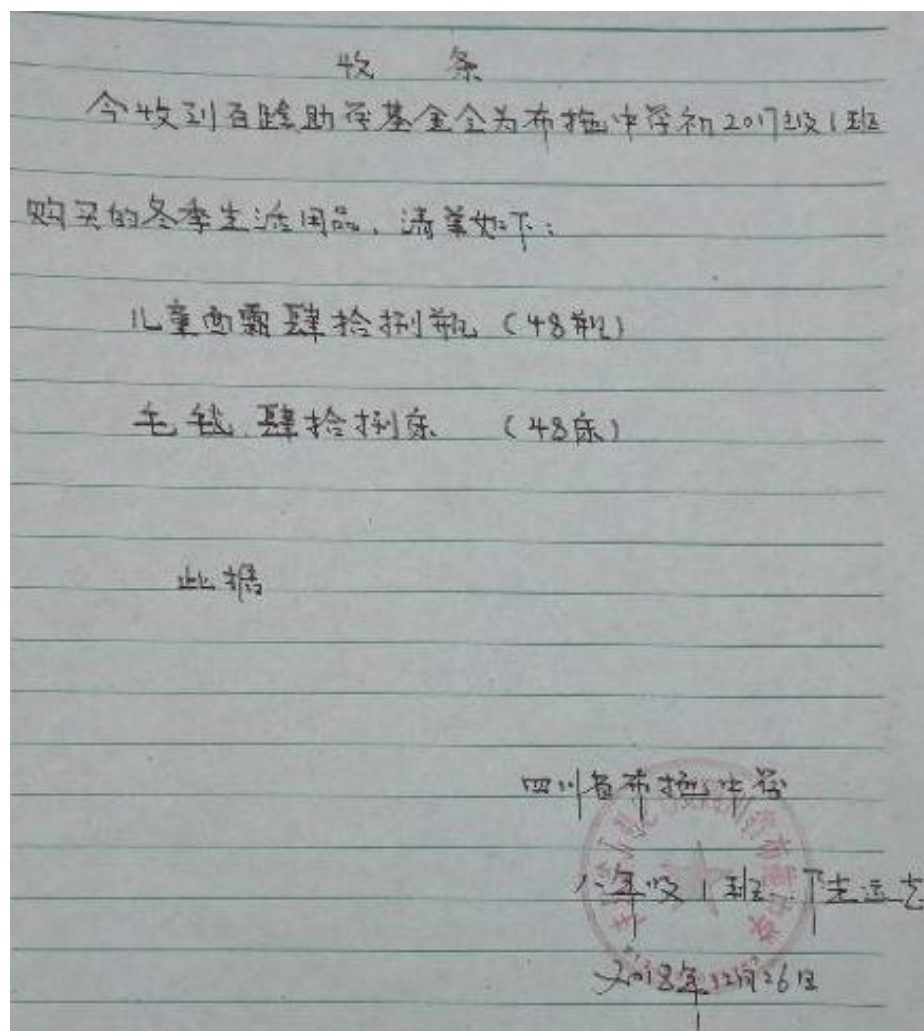 收 条
今收到百隆助学基金会为布拖中学初2017级1班
购买的冬季生活用品，清单如下：
儿童面霜肆拾捌瓶（48瓶）
毛毯肆拾捌床 （48床）
此据
四川省布拖中学
八年级1班
2018年12月26日